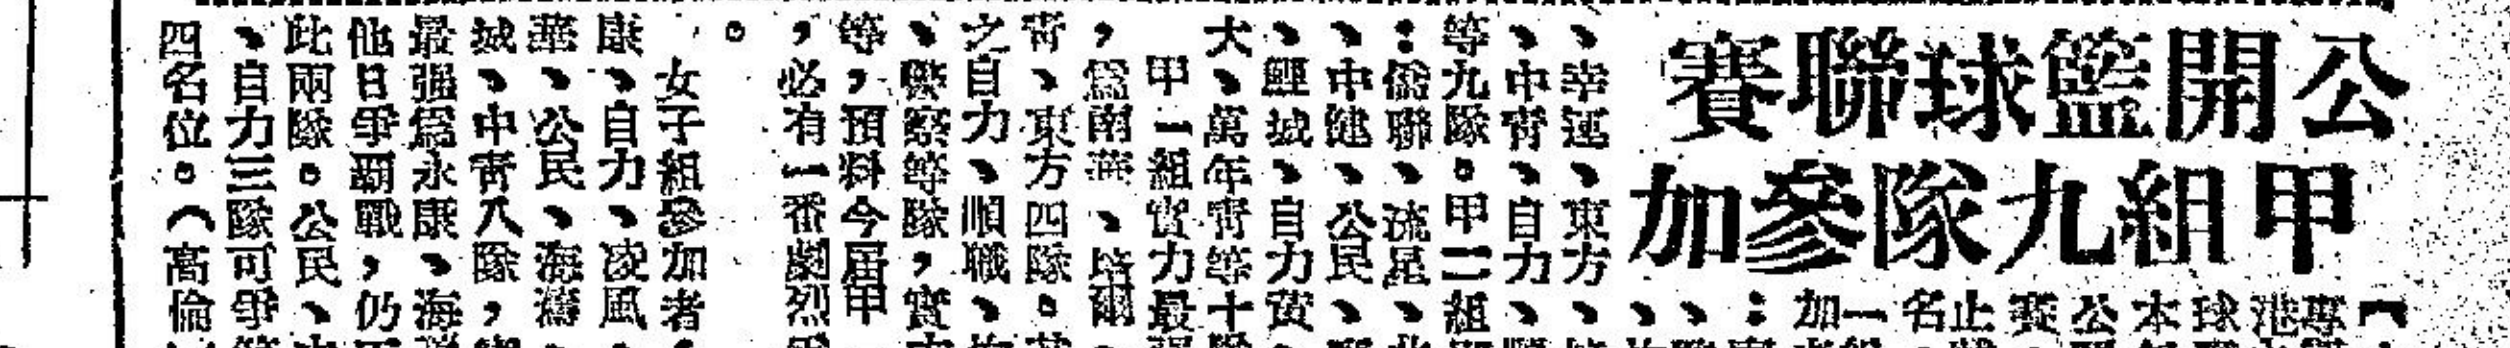 公開籃球聯賽
甲組九隊參加
（
專
港
球
本
公
賽
止
名
一
加
：
、
、
、幸運、東方、
、中青、自力、
等九隊。甲二組
：儒聯、流星、
、中健、公民、
、鯉城、自力黃
大、萬年青等十
甲一組實力最
，爲南華、爾
青、東方四隊。
之自力、順職、
、警察等隊，實
等，預料今屆甲
，必有一番劇烈
。
女子組參加者
康、自力、凌風
華、公民、海
城、中青八隊，
最强爲永康、海
他日爭覇戰，仍
此兩隊。公民、
、自力三隊可爭
四名位。（高倫